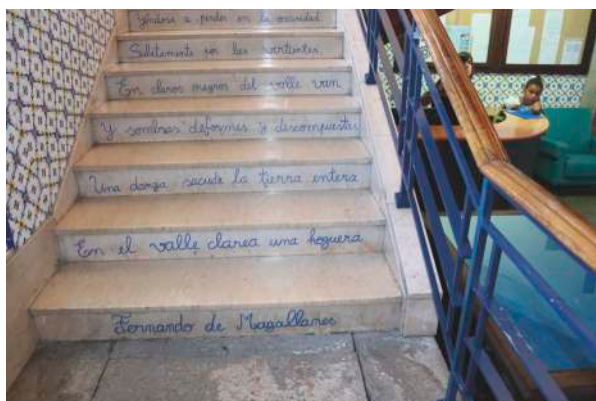 Yéndose a perder en la oscuridad.
Súbitamente por las vertientes.
En claros negros del valle van
Y sombras deformes y descompuestas
Una danza sacude la tierra entera
En el valle clarea una hoguera
Fernando de Magallanes